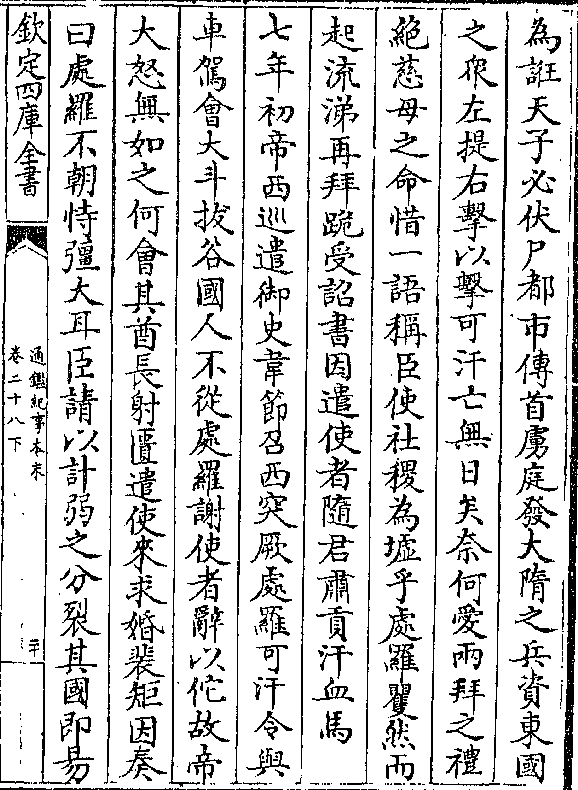 為誑天子必伏尸都市傳首虜庭發大隋之兵資東國
之衆左提右擊以擊可汗亡無日矣奈何愛兩拜之禮
絕慈母之命惜一語稱臣使社稷為墟乎處羅瞿然而
起流涕再拜跪受詔書因遣使者隨君肅貢汗血馬
七年初帝西巡遣御史韋節召西突厥處羅可汗令與
車駕會大斗拔谷國人不從處羅謝使者辭以佗故帝
大怒無如之何會其酋長射匱遣使來求婚裴矩因奏
曰處羅不朝恃彊大耳臣請以計弱之分裂其國即易
欽定四庫全書
通鑑紀事本末
卷二十八下
二十